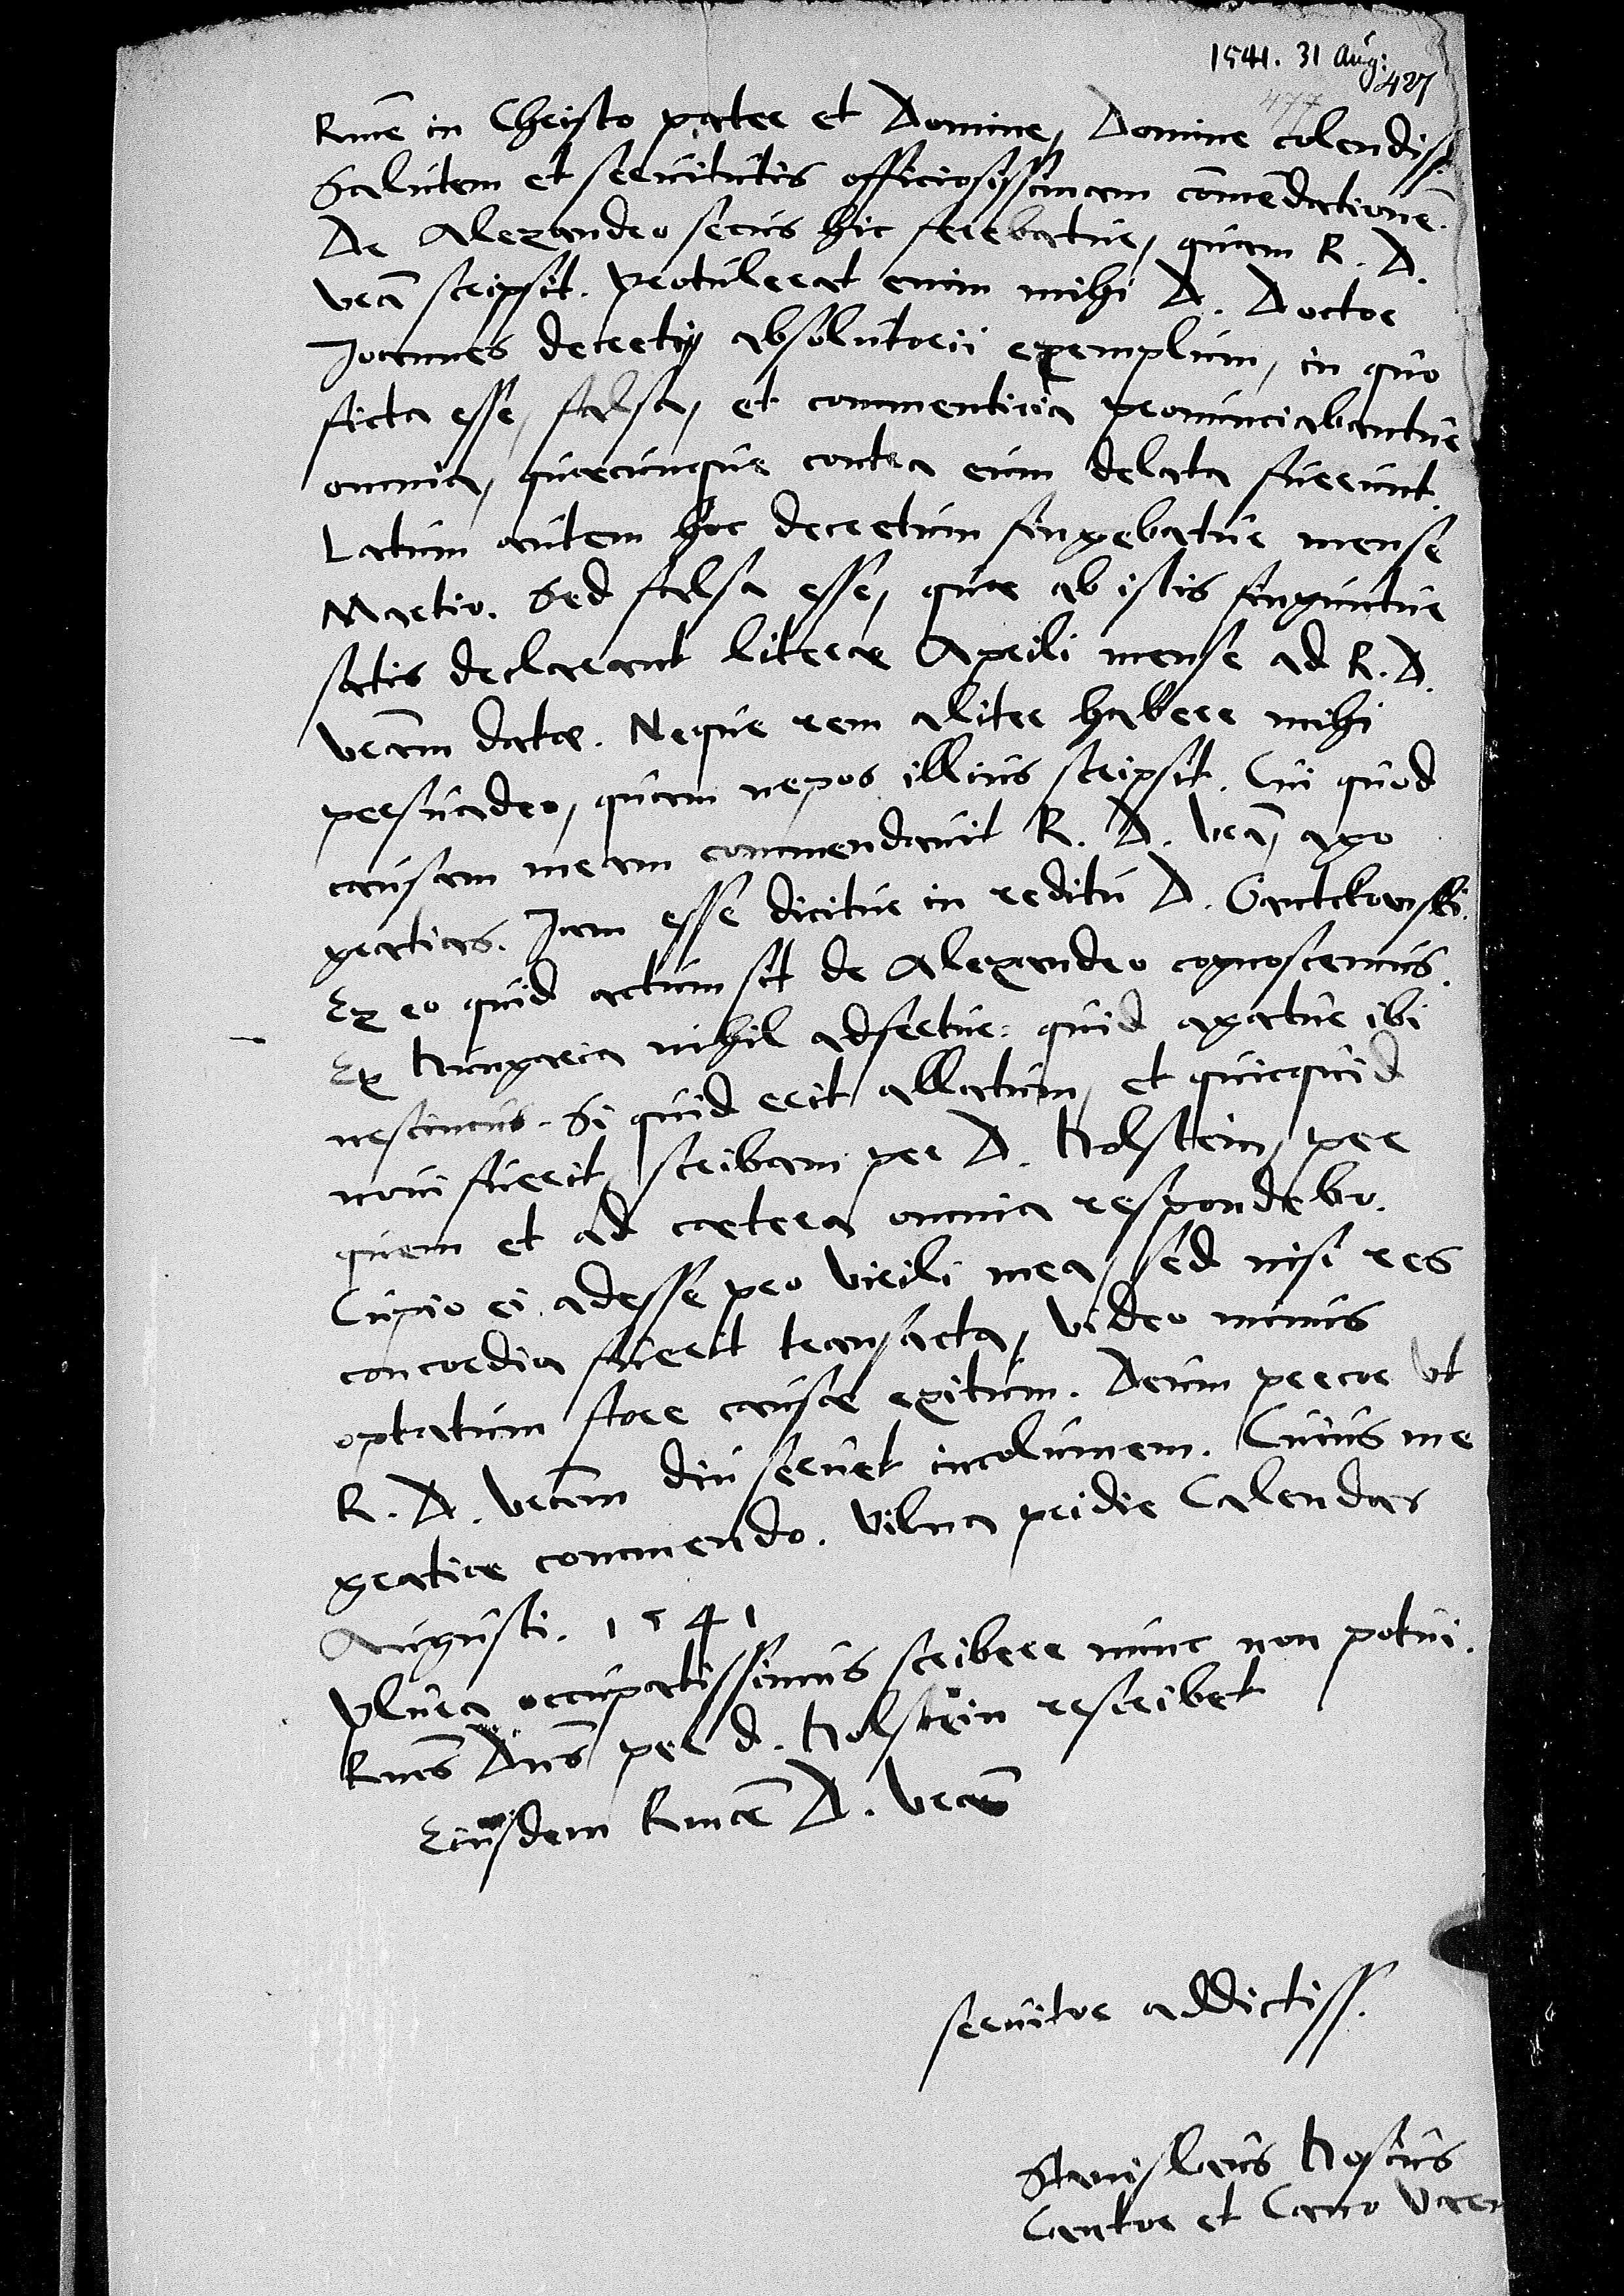 1541. 31 Aug:
427
477
Rme in Christo pater et Domine, Domine colendiss.
Salutem et servitutis officiosissimam comendatione.
De Alexandro secus hic ferebatur, quam R. D.
Vra scripsit. Protulerat enim mihi D. Doctor
Joannes decreti absolutorii exemplum, in quo
ficta esse, falsa, et commenticia pronunciabantur
omnia, quæcunque contra eum delata fuerunt.
Latum autem hoc decretum fingebatur mense
Martio. Sed falsa esse, quæ ab istis finguntur
satis declarant literæ Aprili mense ad R. D.
Vram datæ. Neque rem aliter habere mihi
persuadeo, quam nepos illius scripsit. Cui quod
causam meam commendavit R. D. Vra, ago
gratias. Jam esse dicitur in reditu D. Gantkowski.
Ex eo quid actum sit de Alexandro cognoscemus.
Ex Hungaria nihil adfertur: quid agatur ibi
nescimus. Si quid erit allatum, et quicquid
novi fuerit, scribam per D. Holstein, per
quem et ad cætera omnia respondebo.
Cupio ei adesse pro virili mea, sed nisi res
concordia fuerit transacta, video minus
optatum fore causæ exitum. Deum precor ut
R. D. Vram diu servet incolumem. Cuius me
gratiæ commendo. Vilna pridie Calendas
Augusti. 1541
Plura occupatissimus scribere nunc non potui.
Rmus Dns per d. Holstein rescribet
Eiusdem Rmæ D. Vræ
servitor addictiss.
Stanislaus Hosius
Cantor et Cano Varm